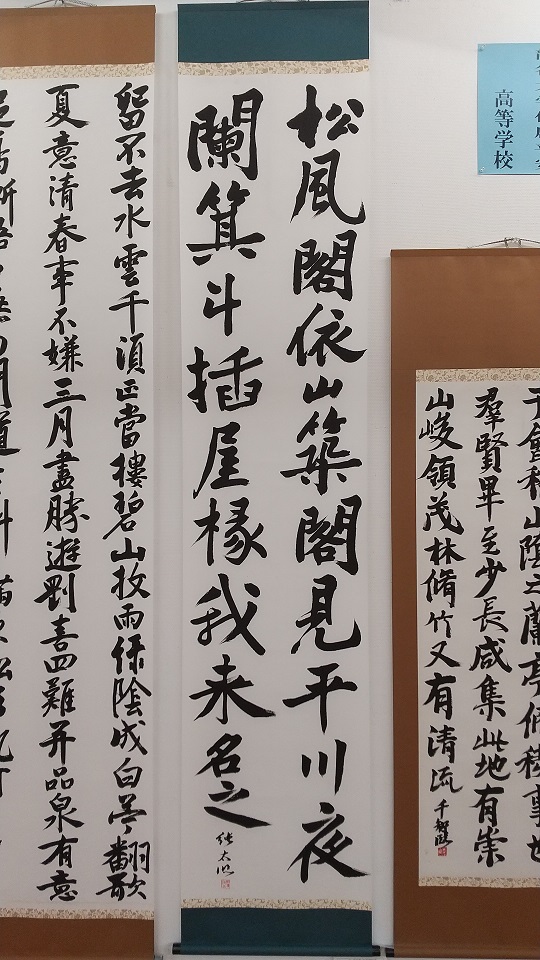 高等学校
于會稽山陰之蘭亭脩稧事也
羣賢畢至少長咸集此地有崇
山峻領茂林脩竹又有清流
松風閣依山築閣見平川夜
闌箕斗插屋椽我来名之
留不去水雲千頃正當樓碧山放雨綠陰成白苧翻歌
夏意清春事不嫌三月盡勝遊剛喜四難并品泉有意